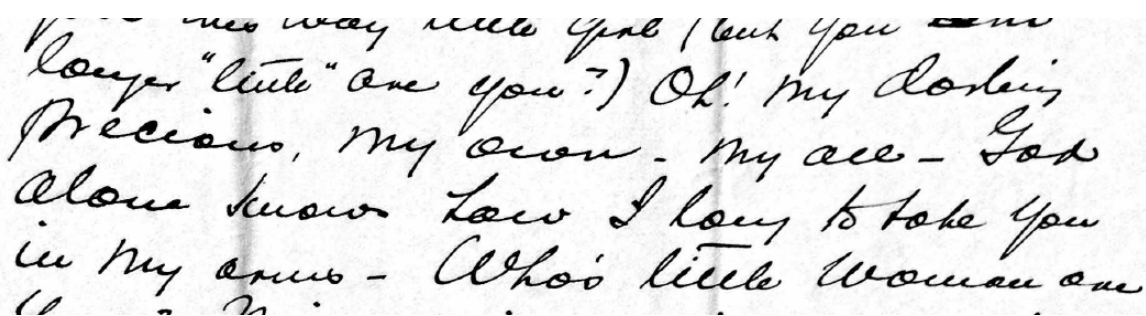 way little girl (but you
longer "little" are you?) Oh! my darling
Precious, my own - my all - God
alone knows how I long to take you
in my arms - Who's little woman are